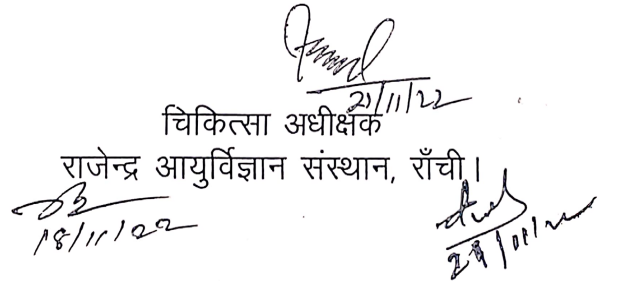 21/11/22
चिकित्सा अधीक्षक
राजेन्द्र आयुर्विज्ञान संस्थान, राँची।
18/11/22